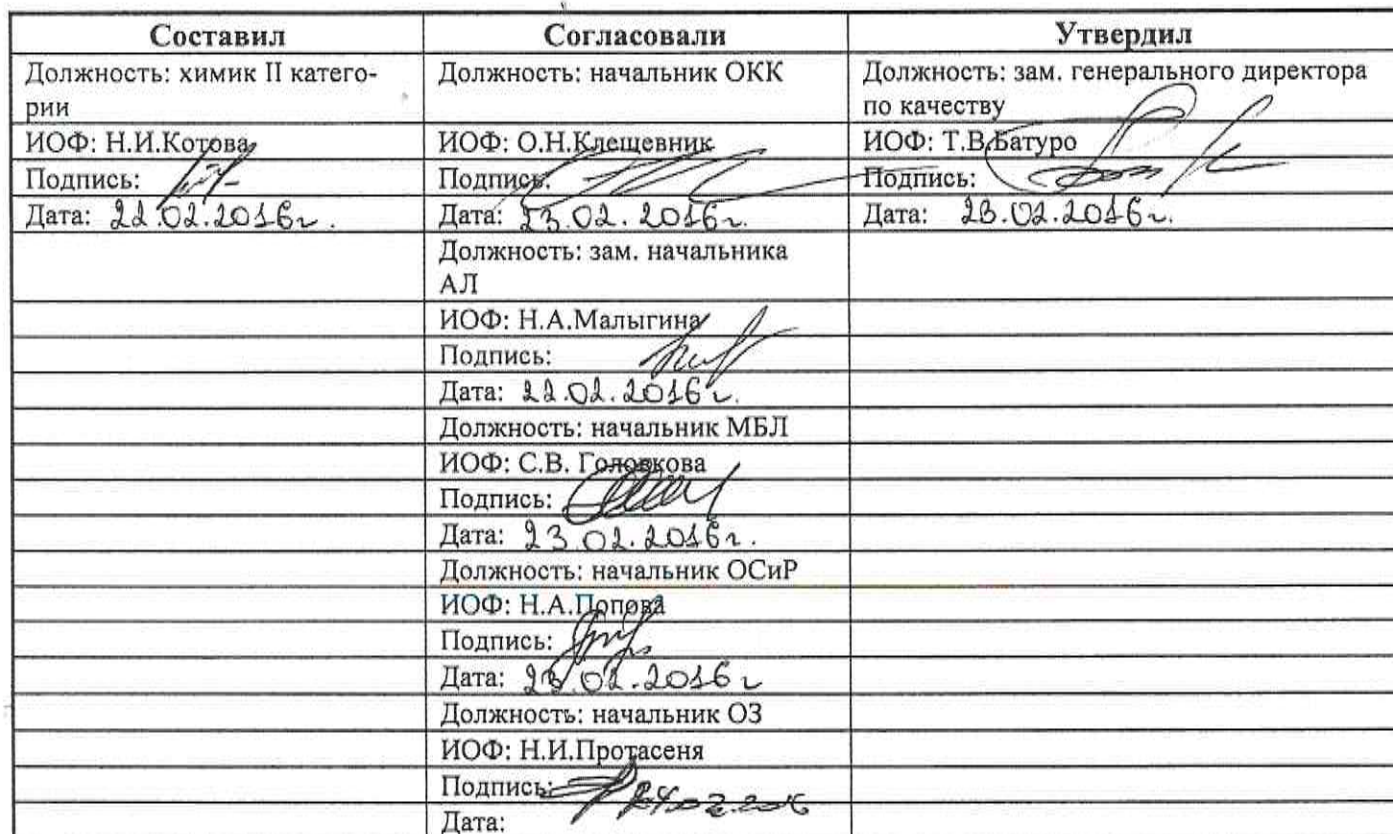 Составил Согласовали Утвердил
Должность: химик II катего- Должность: начальник ОКК Должность: зам. генерального директора
рии по качеству
ИОФ: Н.И.Котова ИОФ: О.Н.Клещевник ИОФ: Т.В.Батуро
Подпись: Подпись: Подпись:
Дата: 22.02.2016г. Дата: 23.02.2016г. Дата: 23.02.2016г.
Должность: зам. начальника
АЛ
ИОФ: Н.А.Малыгина
Подпись:
Дата: 22.02.2016г.
Должность: начальник МБЛ
ИОФ: С.В. Головкова
Подпись:
Дата: 23.02.2016г.
Должность: начальник ОСиР
ИОФ: Н.А.Попова
Подпись:
Дата: 23.02.2016г
Должность: начальник ОЗ
ИОФ: Н.И.Протасеня
Подпись: 24.02.2016
Дата: